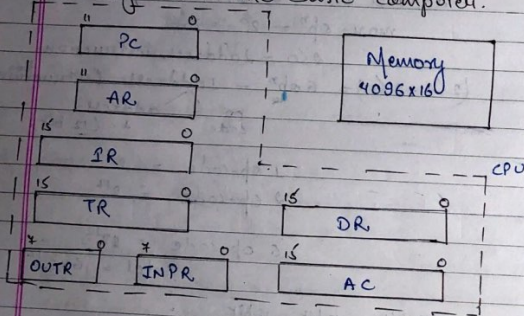 Basic Computer.
11 0
PC
Memory
4096x16
11 0
AR
15 0
IR
CPU
15 0
TR
15 0
DR
7 0
OUTR
7 0
INPR
15 0
AC